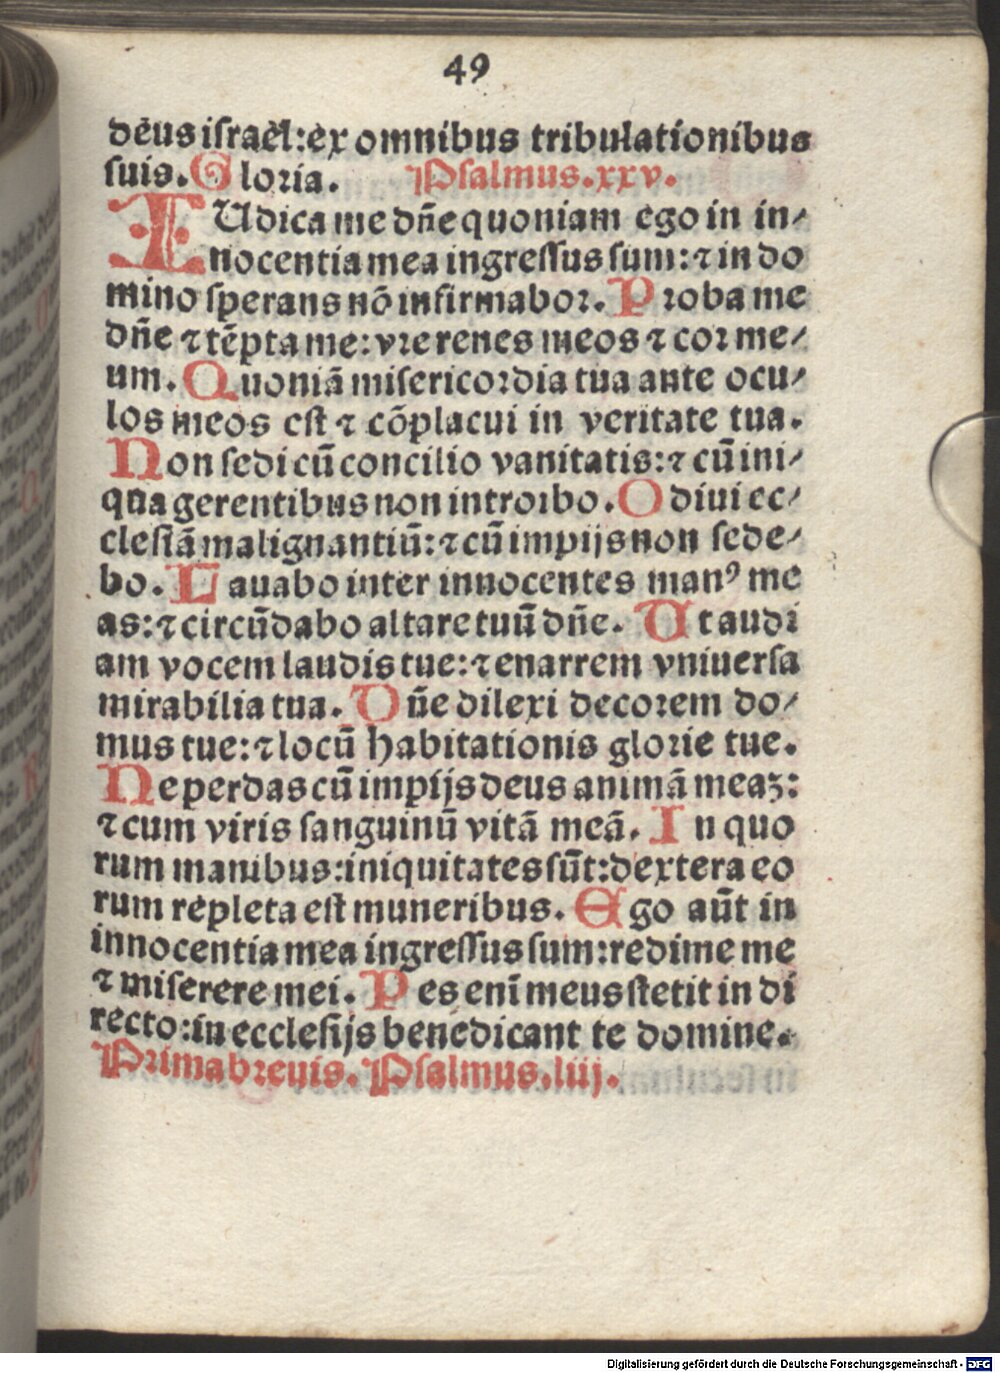 49
deus israel:ex omnibus tribulationibus
suis. Gloria. Psalmus.xxv.
IUdica me dñe quoniam ego in in⸗
nocentia mea ingressus sum: ⁊ in do
mino sperans nō infirmabor. Proba me
dñe ⁊ tēpta me: vre renes meos ⁊ cor me⸗
um. Quoniā misericordia tua ante ocu⸗
los meos est ⁊ cōplacui in veritate tua.
Non sedi cū concilio vanitatis: ⁊ cū ini⸗
qua gerentibus non introibo. Odiui ec⸗
clesiā malignantiū: ⁊ cū impijs non sede⸗
bo. Lauabo inter innocentes manꝰ me
as: ⁊ circūdabo altare tuū dñe. Ut audi
am vocem laudis tue: ⁊ enarrem vniuersa
mirabilia tua. Dñe dilexi decorem do⸗
mus tue: ⁊ locū habitationis glorie tue.
Ne perdas cū impijs deus animā meaꝫ:
⁊ cum viris sanguinū vitā meā. In quo
rum manibus: iniquitates sūt: dextera eo
rum repleta est muneribus. Ego aūt in
innocentia mea ingressus sum: redime me
⁊ miserere mei. Pes enī meus stetit in di
recto: in ecclesijs benedicant te domine.
Prima breuis. Psalmus.liij.
Digitalisierung gefördert durch die Deutsche Forschungsgemeinschaft - DFG